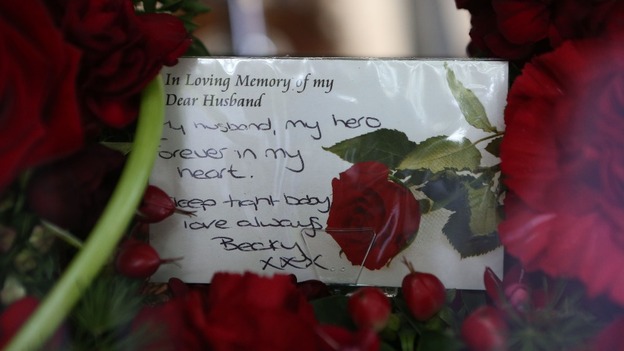 In Loving Memory of my
Dear Husband
My husband, my hero
Forever in my
heart.
Sleep tight baby
love always
Becky
xxx